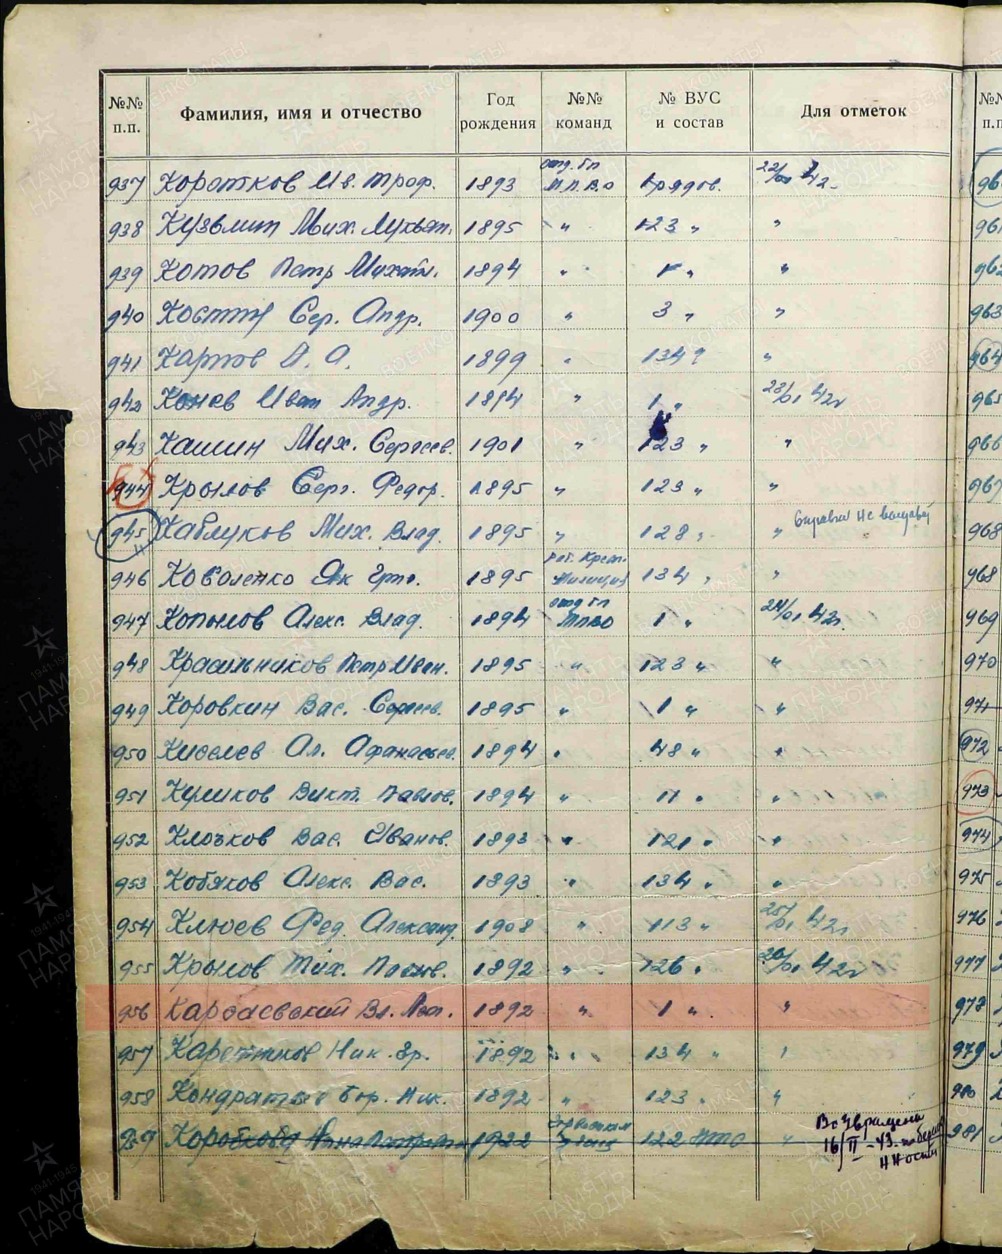 №№ п.п. Фамилия, имя и отчество Год рождения №№ команд № ВУС и состав Для отметок №№ п.п.
937 Коротков Ив. Троф. 1893 отд. гп М.П.В.О 1 рядов. 22/01 42 96
938 Кузьмин Мих. 1895 " 123 " " 961
939 Котов Петр Михайл. 1894 " 1 " " 962
940 Костин Сер. Андр. 1900 " 3 " " 963
941 А. А. 1899 " 134 " 964
942 Конев Иван Андр. 1894 " 1 " 23/01 42г 965
943 Кашин Мих. Сергеев. 1901 " 123 " " 966
944 Крылов Серг. Федор. 1895 " 123 " " 967
945 Каблуков Мих. Влад. 1895 " 128 " " Справка не 968
946 Коваленко Як 1895 милиция 134 " " 968
947 Копылов Алекс. Влад. 1894 отд гп МПВО 1 " 24/01 42г. 969
948 Красильников Петр Иван. 1895 " 123 " " 970
949 Коровкин Вас. Сергеев. 1895 " 1 " " 971
950 Киселев Ал. Афанасьев. 1894 " 48 " " 972
951 Куликов Викт. Павлов. 1894 " 11 " " 973
952 Клочков Вас. Иванов. 1893 " 121 " " 974
953 Кобяков Алекс. Вас. 1893 " 134 " " 975
954 Клюев Фед. Александ. 1908 " 113 " 25/01 42г 976
955 Крылов Мих. 1892 " 126 " 26/01 42г 977
956 Вл. 1892 " 1 " " 978
957 Ник. Гр. 1892 " 134 " " 979
958 Кондратьев Бор. Ник. 1892 " 123 " " 980
959 Коробкова Анна 1922 122 " 981
Возвращена
16/II-43.